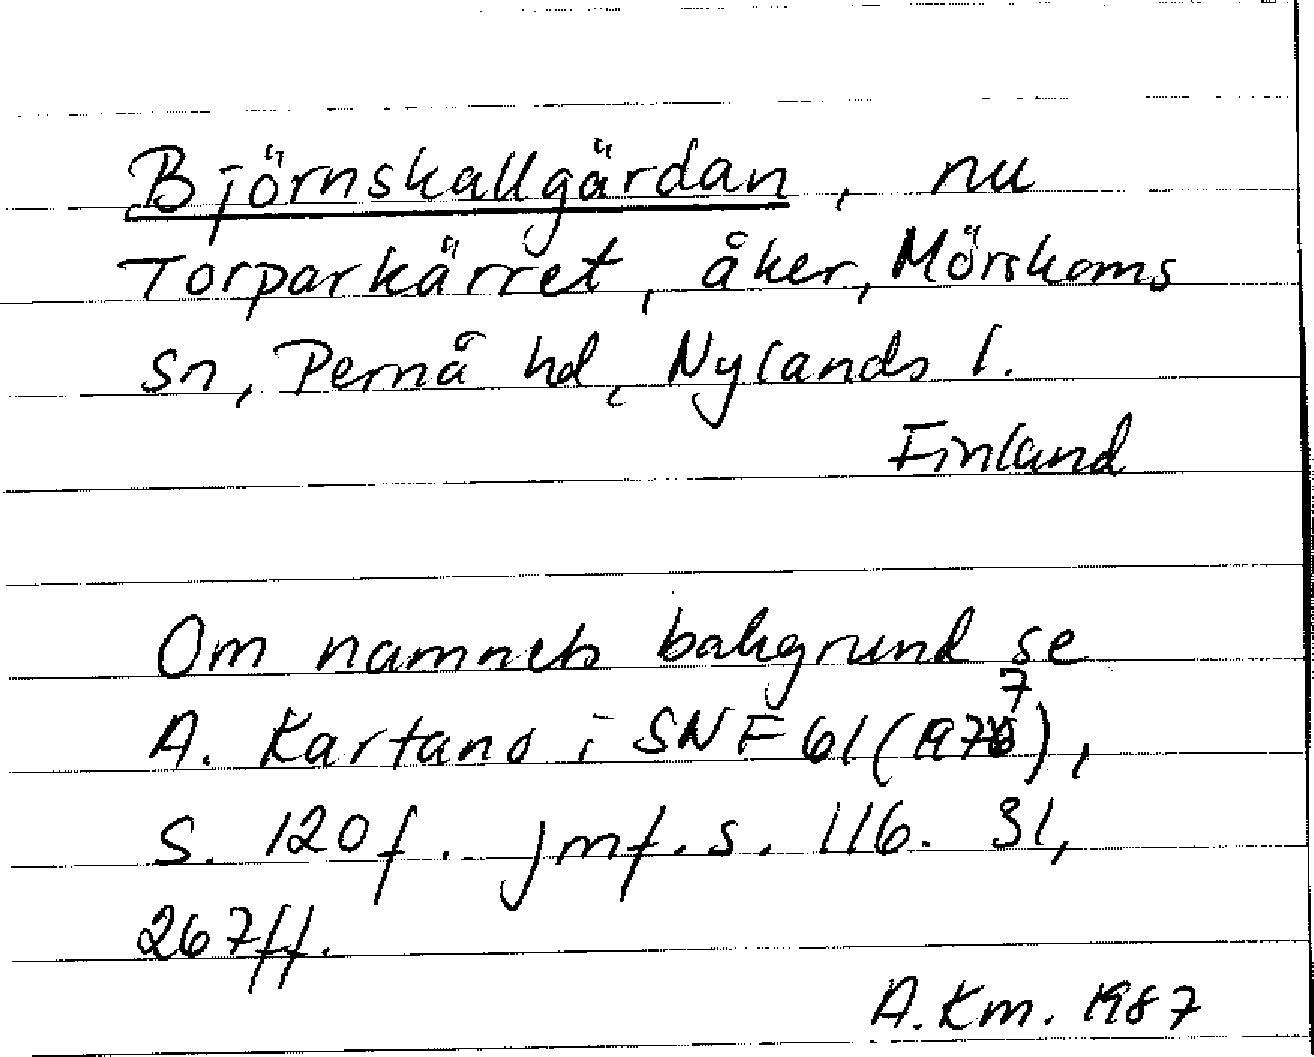 Björnskallgärdan, nu
Torparkärret, åker, Mörskoms
sn, Pernå hd, Nylands l.
Finland
Om namnets bakgrund se
A. Kartano i SNF 61 (1977),
s. 120f. Jmf. s. 116. 31,
267ff.
A.Km. 1987